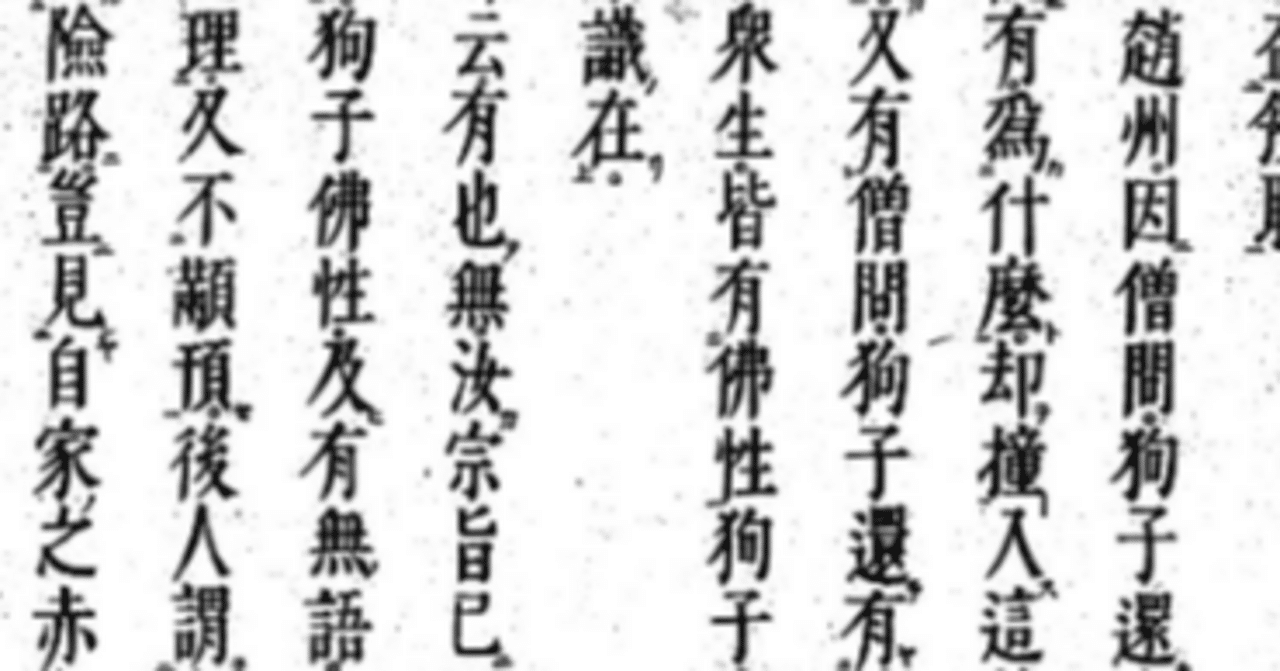 趙州因僧問狗子還
有爲什麼却撞入這
又有僧問狗子還有
衆生皆有佛性狗子
識在
云有也無汝宗旨已
狗子佛性及有無語
理久不顢頇後人謂
險路豈見自家之赤